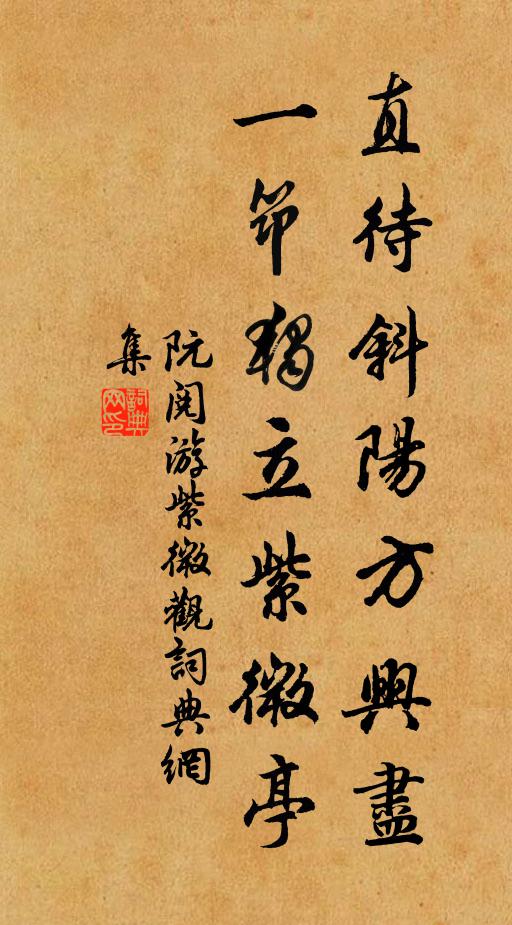 直待斜陽方興盡
一笻獨立紫微亭
阮閱游紫微觀詞典網
集
詞典
网印